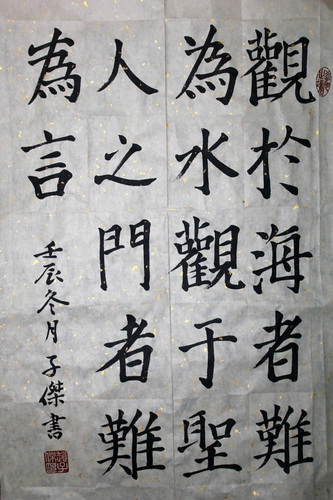 觀於海者難
為水觀于聖
人之門者難
為言
壬辰冬月子傑書